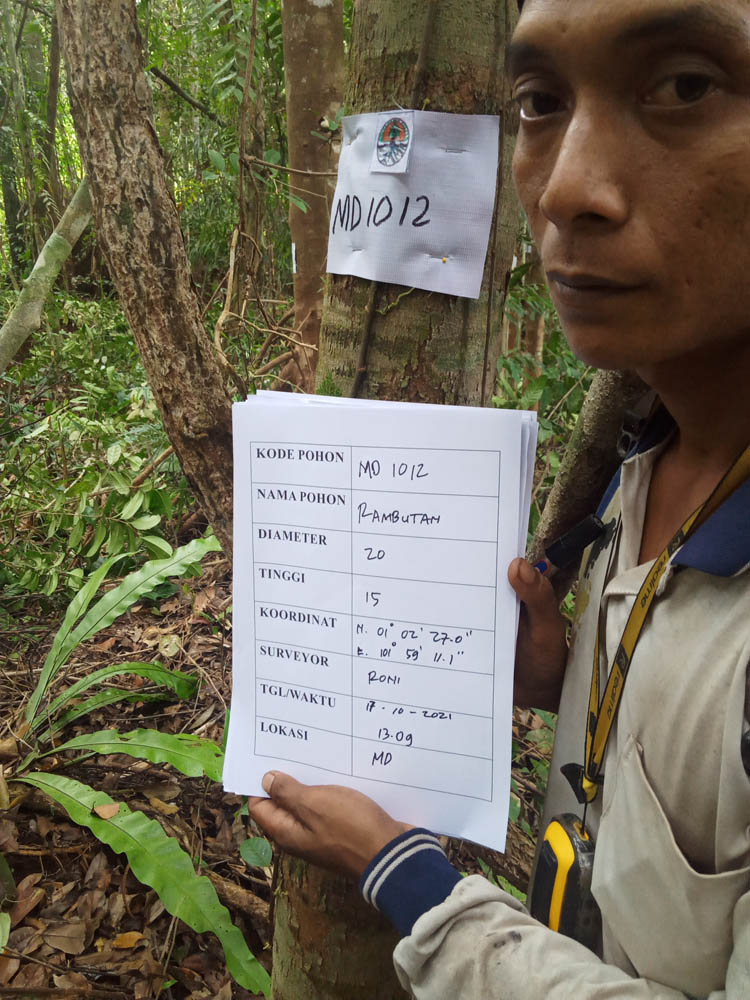 MD1012
KODE POHON MD 1012
NAMA POHON RAMBUTAN
DIAMETER 20
TINGGI 15
KOORDINAT N. 01° 02' 27.0"
E. 101° 59' 11.1"
SURVEYOR RONI
TGL/WAKTU 17-10-2021
13.09
LOKASI MD